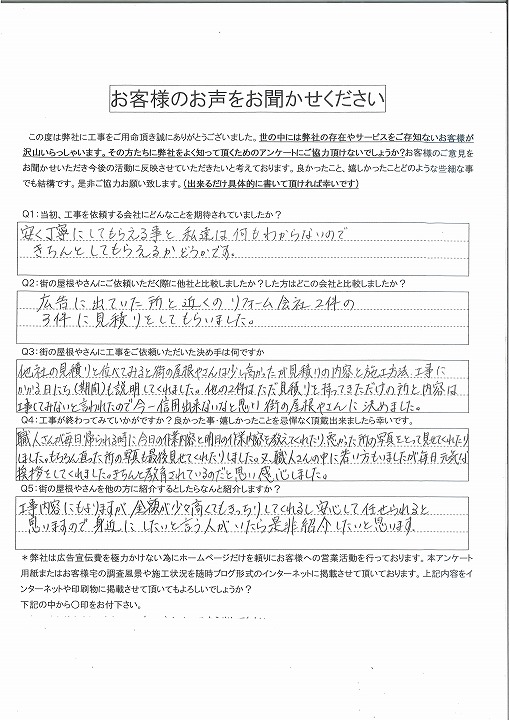 お客様のお声をお聞かせください
この度は弊社に工事をご用命頂き誠にありがとうございました。世の中には弊社の存在やサービスをご存知ないお客様が
沢山いらっしゃいます。その方たちに弊社をよく知って頂くためのアンケートにご協力頂けないでしょうか?お客様のご意見を
お聞かせいただき今後の活動に反映させていただきたいと考えております。良かったこと、嬉しかったことどのような些細な事
でも結構です。是非ご協力お願い致します。(出来るだけ具体的に書いて頂ければ幸いです)
Q1:当初、工事を依頼する会社にどんなことを期待されていましたか?
安く丁寧にしてもらえる事と 私達は何もわからないので
きちんとしてもらえるかどうかです。
Q2:街の屋根やさんにご依頼いただく際に他社と比較しましたか?した方はどこの会社と比較しましたか?
広告に出ていた所と近くのリフォーム会社2件の
3件に見積りをしてもらいました。
Q3:街の屋根やさんに工事をご依頼いただいた決め手は何ですか
他社の見積りと比べてみると街の屋根やさんは少し高かったが見積りの内容と施工方法、工事に
かかる日にち(期間)も説明してくれました。他の2件はただ見積りを持ってきただけの所と内容は
工事してみないと言われたので今一信用出来ないなと思い街の屋根やさんに決めました。
Q4:工事が終わってみていかがですか?良かった事・嬉しかったことを忌憚なく頂戴出来ましたら幸いです。
職人さんが毎日帰られる時に今日の作業内容と明日の作業内容を教えてくれたり悪かった所の写真をとって見せてくれたり
しました。もちろん直った所の写真も最後見せてくれたりしました。又、職人さんの中に若い方もいましたが毎日元気な
挨拶をしてくれました。きちんと教育されているのだと思い感心しました。
Q5:街の屋根やさんを他の方に紹介するとしたらなんと紹介しますか?
工事内容にもよりますが、金額が少々高くてもきっちりしてくれるし安心して任せられると
思いますので身近にしたいと言う人がいたら是非紹介したいと思います。
*弊社は広告宣伝費を極力かけない為にホームページだけを頼りにお客様への営業活動を行っております。本アンケート
用紙またはお客様宅の調査風景や施工状況を随時ブログ形式のインターネットに掲載させて頂いております。上記内容をイ
ンターネットや印刷物に掲載させて頂いてもよろしいでしょうか?
下記の中から〇印をお付下さい。